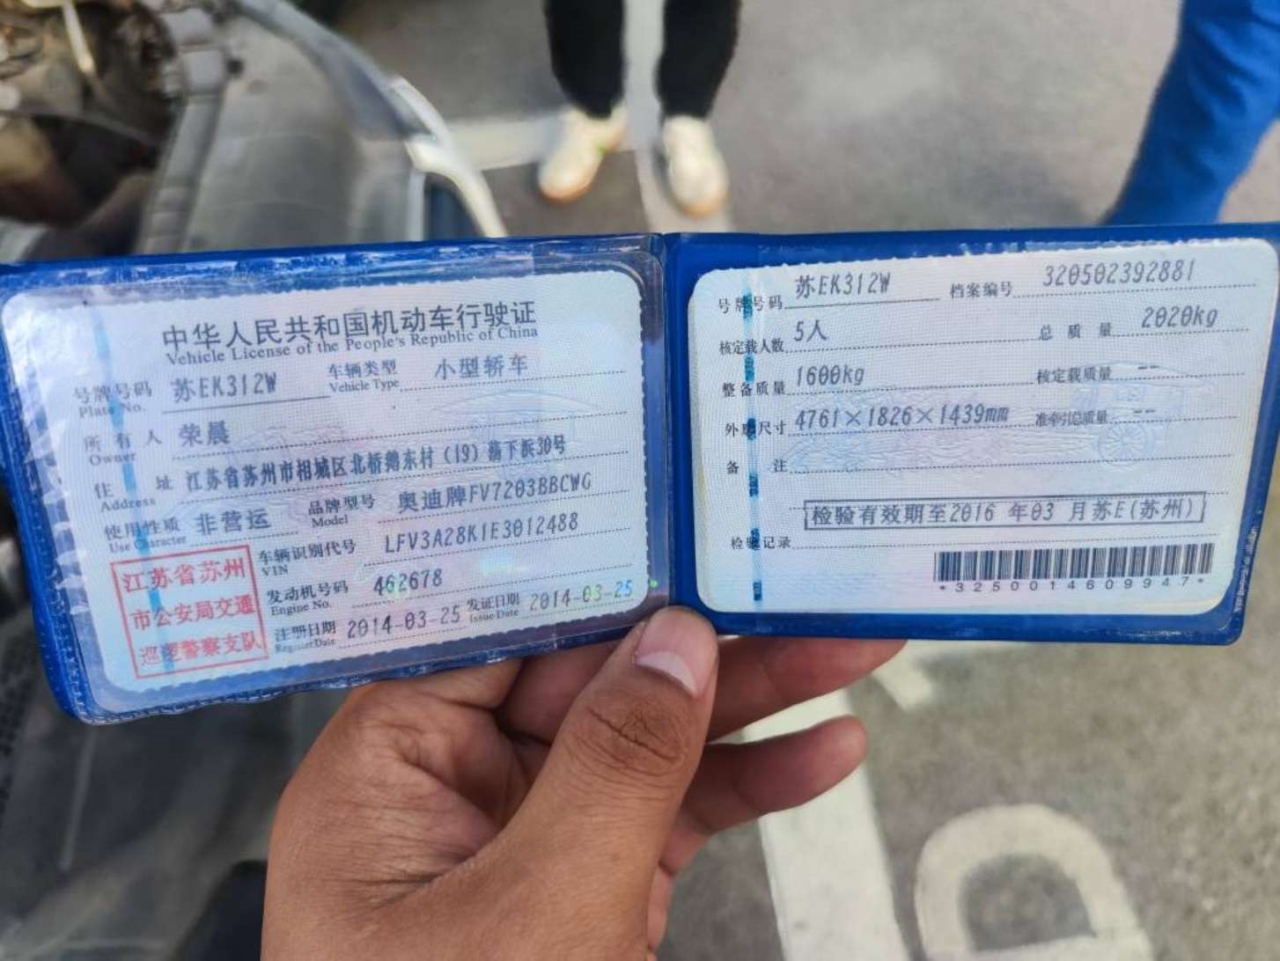 中华人民共和国机动车行驶证
Vehicle License of the People's Republic of China
号牌号码 苏EK312W 车辆类型 小型轿车
Plate No. Vehicle Type
所有人 荣晨
Owner
住址 江苏省苏州市相城区北桥鹅东村(19)荡下浜30号
Address
使用性质 非营运 品牌型号 奥迪牌FV7203BBCWG
Use Character Model
车辆识别代号 LFV3A28K1E3012488
VIN
发动机号码 462678
Engine No.
注册日期 2014-03-25 发证日期 2014-03-25
Register Date Issue Date
江苏省苏州
市公安局交通
巡逻警察支队
号牌号码 苏EK312W 档案编号 320502392881
核定载人数 5人 总质量 2020kg
整备质量 1600kg 核定载质量 --
外廓尺寸 4761×1826×1439mm 准牵引总质量 --
备注
检验有效期至2016年03月苏E(苏州)
检验记录
*3250014609947*